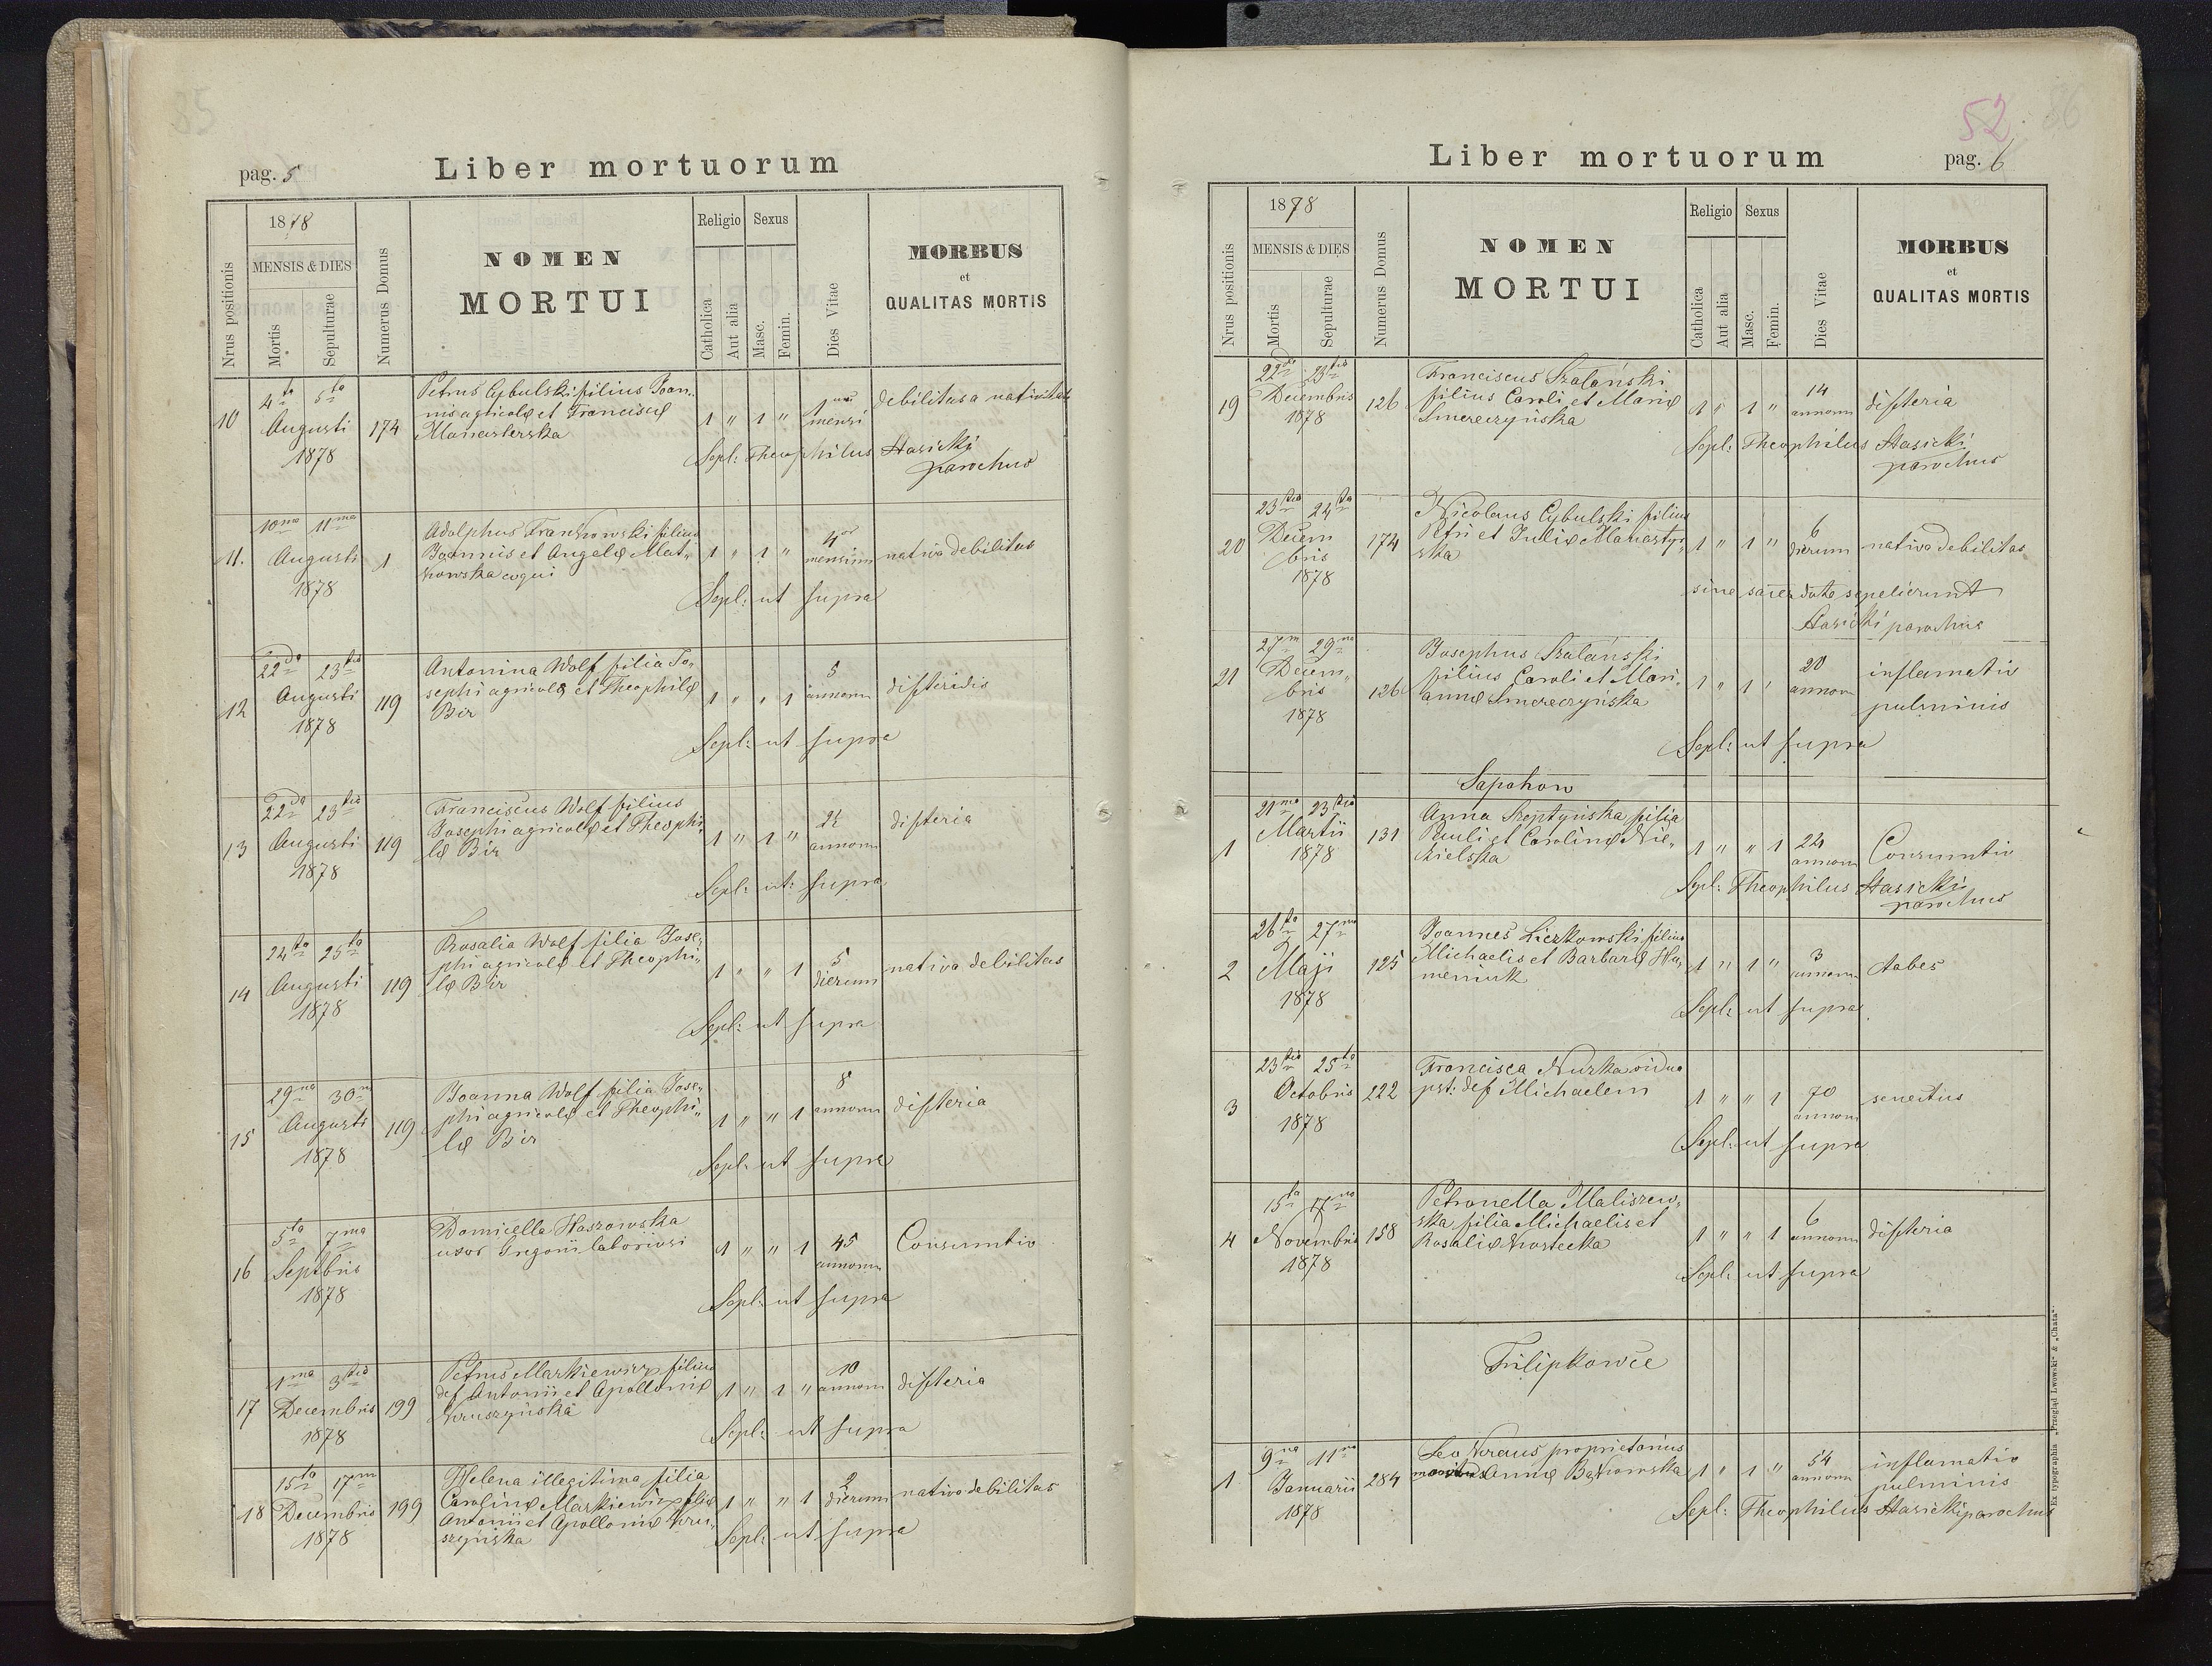 85
pag. 5
Liber mortuorum
Nrus positionis
1878
MENSIS & DIES
Mortis
Sepulturae
Numerus Domus
NOMEN
MORTUI
Religio
Catholica
Aut alia
Sexus
Masc.
Femin.
Dies Vitae
MORBUS
et
QUALITAS MORTIS
10
4ta 5ta
Augusti
1878
174
Petrus Cybulski filius Joan„
nis agricolæ et Franciscæ
Manasterska
1 „ 1 „
1 mensi
debilitas a nativitate
Sepl: Theophilus Hasicki
parochus
11.
10ma 11ma
Augusti
1878
1
Adolphus Frankowski filius
Joannis et Angelæ Mat„
kowska coqui
1 „ 1 „
4or
mensium
nativa debilitas
Sepl: ut supra
12
22da 23tia
Augusti
1878
119
Antonina Wolf filia Jo„
sephi agricolæ et Theophilæ
Bir
1 „ „ 1
5
annorum
difteridis
Sepl: ut supra
13
22da 23tia
Augusti
1878
119
Franciscus Wolf filius
Josephi agricolæ et Theophi„
læ Bir
1 „ 1 „
2½
annorum
difteria
Sepl: ut: supra
14
24ta 25ta
Augusti
1878
119
Rosalia Wolf filia Jose„
phi agricolæ et Theophi„
læ Bir
1 „ „ 1
5
dierum
nativa debilitas
Sepl: ut supra
15
29na 30m
Augusti
1878
119
Joanna Wolf filia Jose„
phi agricolæ et Theophi„
læ Bir
1 „ „ 1
8
annorum
difteria
Sepl: ut supra
16
5ta 7ma
Septbris
1878
Domicella Haszowska
uxor Gregorii laboriosi
1 „ „ 1
45
annorum
Consumtio
Sepl: ut supra
17
1ma 3tia
Decembris
1878
199
Petrus Markiewicz filius
def Antonii et Apolloniæ
Kruszyńska
1 „ 1 „
10
annorum
difteria
Sepl: ut supra
18
15ta 17m
Decembris
1878
199
Helena illegitima filia
Carolinæ Markiewicz filiæ
Antonii et Apolloniæ Kru„
szyńska
1 „ „ 1
2
dierum
nativa debilitas
Sepl: ut supra
52
86
Liber mortuorum
pag. 6
Nrus positionis
1878
MENSIS & DIES
Mortis
Sepulturae
Numerus Domus
NOMEN
MORTUI
Religio
Catholica
Aut alia
Sexus
Masc.
Femin.
Dies Vitae
MORBUS
et
QUALITAS MORTIS
19
22da 23tia
Decembris
1878
126
Franciscus Szalański
filius Caroli et Mariæ
Smereczyńska
1 „ 1 „
14
annorum
difteria
Sepl: Theophilus Hasicki
parochus
20
23tia 24ta
Decem
bris
1878
174
Nicolaus Cybulski filius
Petri et Juliæ Manastyr„
ska
1 „ 1 „
6
dierum
nativa debilitas
sine sacerdote sepelierunt
Hasicki parochus
21
27m 29na
Decem„
bris
1878
126
Josephus Szalański
filius Caroli et Mari„
annæ Smereczyńska
1 „ 1 '
20
annorum
inflamatio
pulminis
Sepl: ut supra
Sapohow
1
21ma 23tia
Martii
1878
131
Anna Szeptyńska filia
Pauli et Carolinæ Nie„
zielska
1 „ „ 1
24
annorum
Consumtio
Sepl: Theophilus Hasicki
parochus
2
26ta 27ma
Maji
1878
125
Joannes Liczkowski filius
Michaelis et Barbaræ Hu„
meniuk
1 „ 1 „
3
annorum
tabes
Sepl: ut supra
3
23tia 25ta
Octobris
1878
222
Francisca Nurka vidua
pst: def Michaelem
1 „ „ 1
70
annorum
senectus
Sepl: ut supra
4
15ta 17ma
Novembris
1878
158
Petronella Maliszew„
ska filia Michaelis et
Rosaliæ Kostecka
1 „ „ 1
6
annorum
difteria
Sepl: ut supra
Filipkowce
1.
9na 11na
Januarii
1878
284
Leo Kraus proprietarius
maritus Annæ Bańkowska
1 „ 1 „
54
annorum
inflamatio
pulminis
Sepl: Theophilus Hasicki parochus
Ex typographia „Przegląd Lwowski" & „Chata".